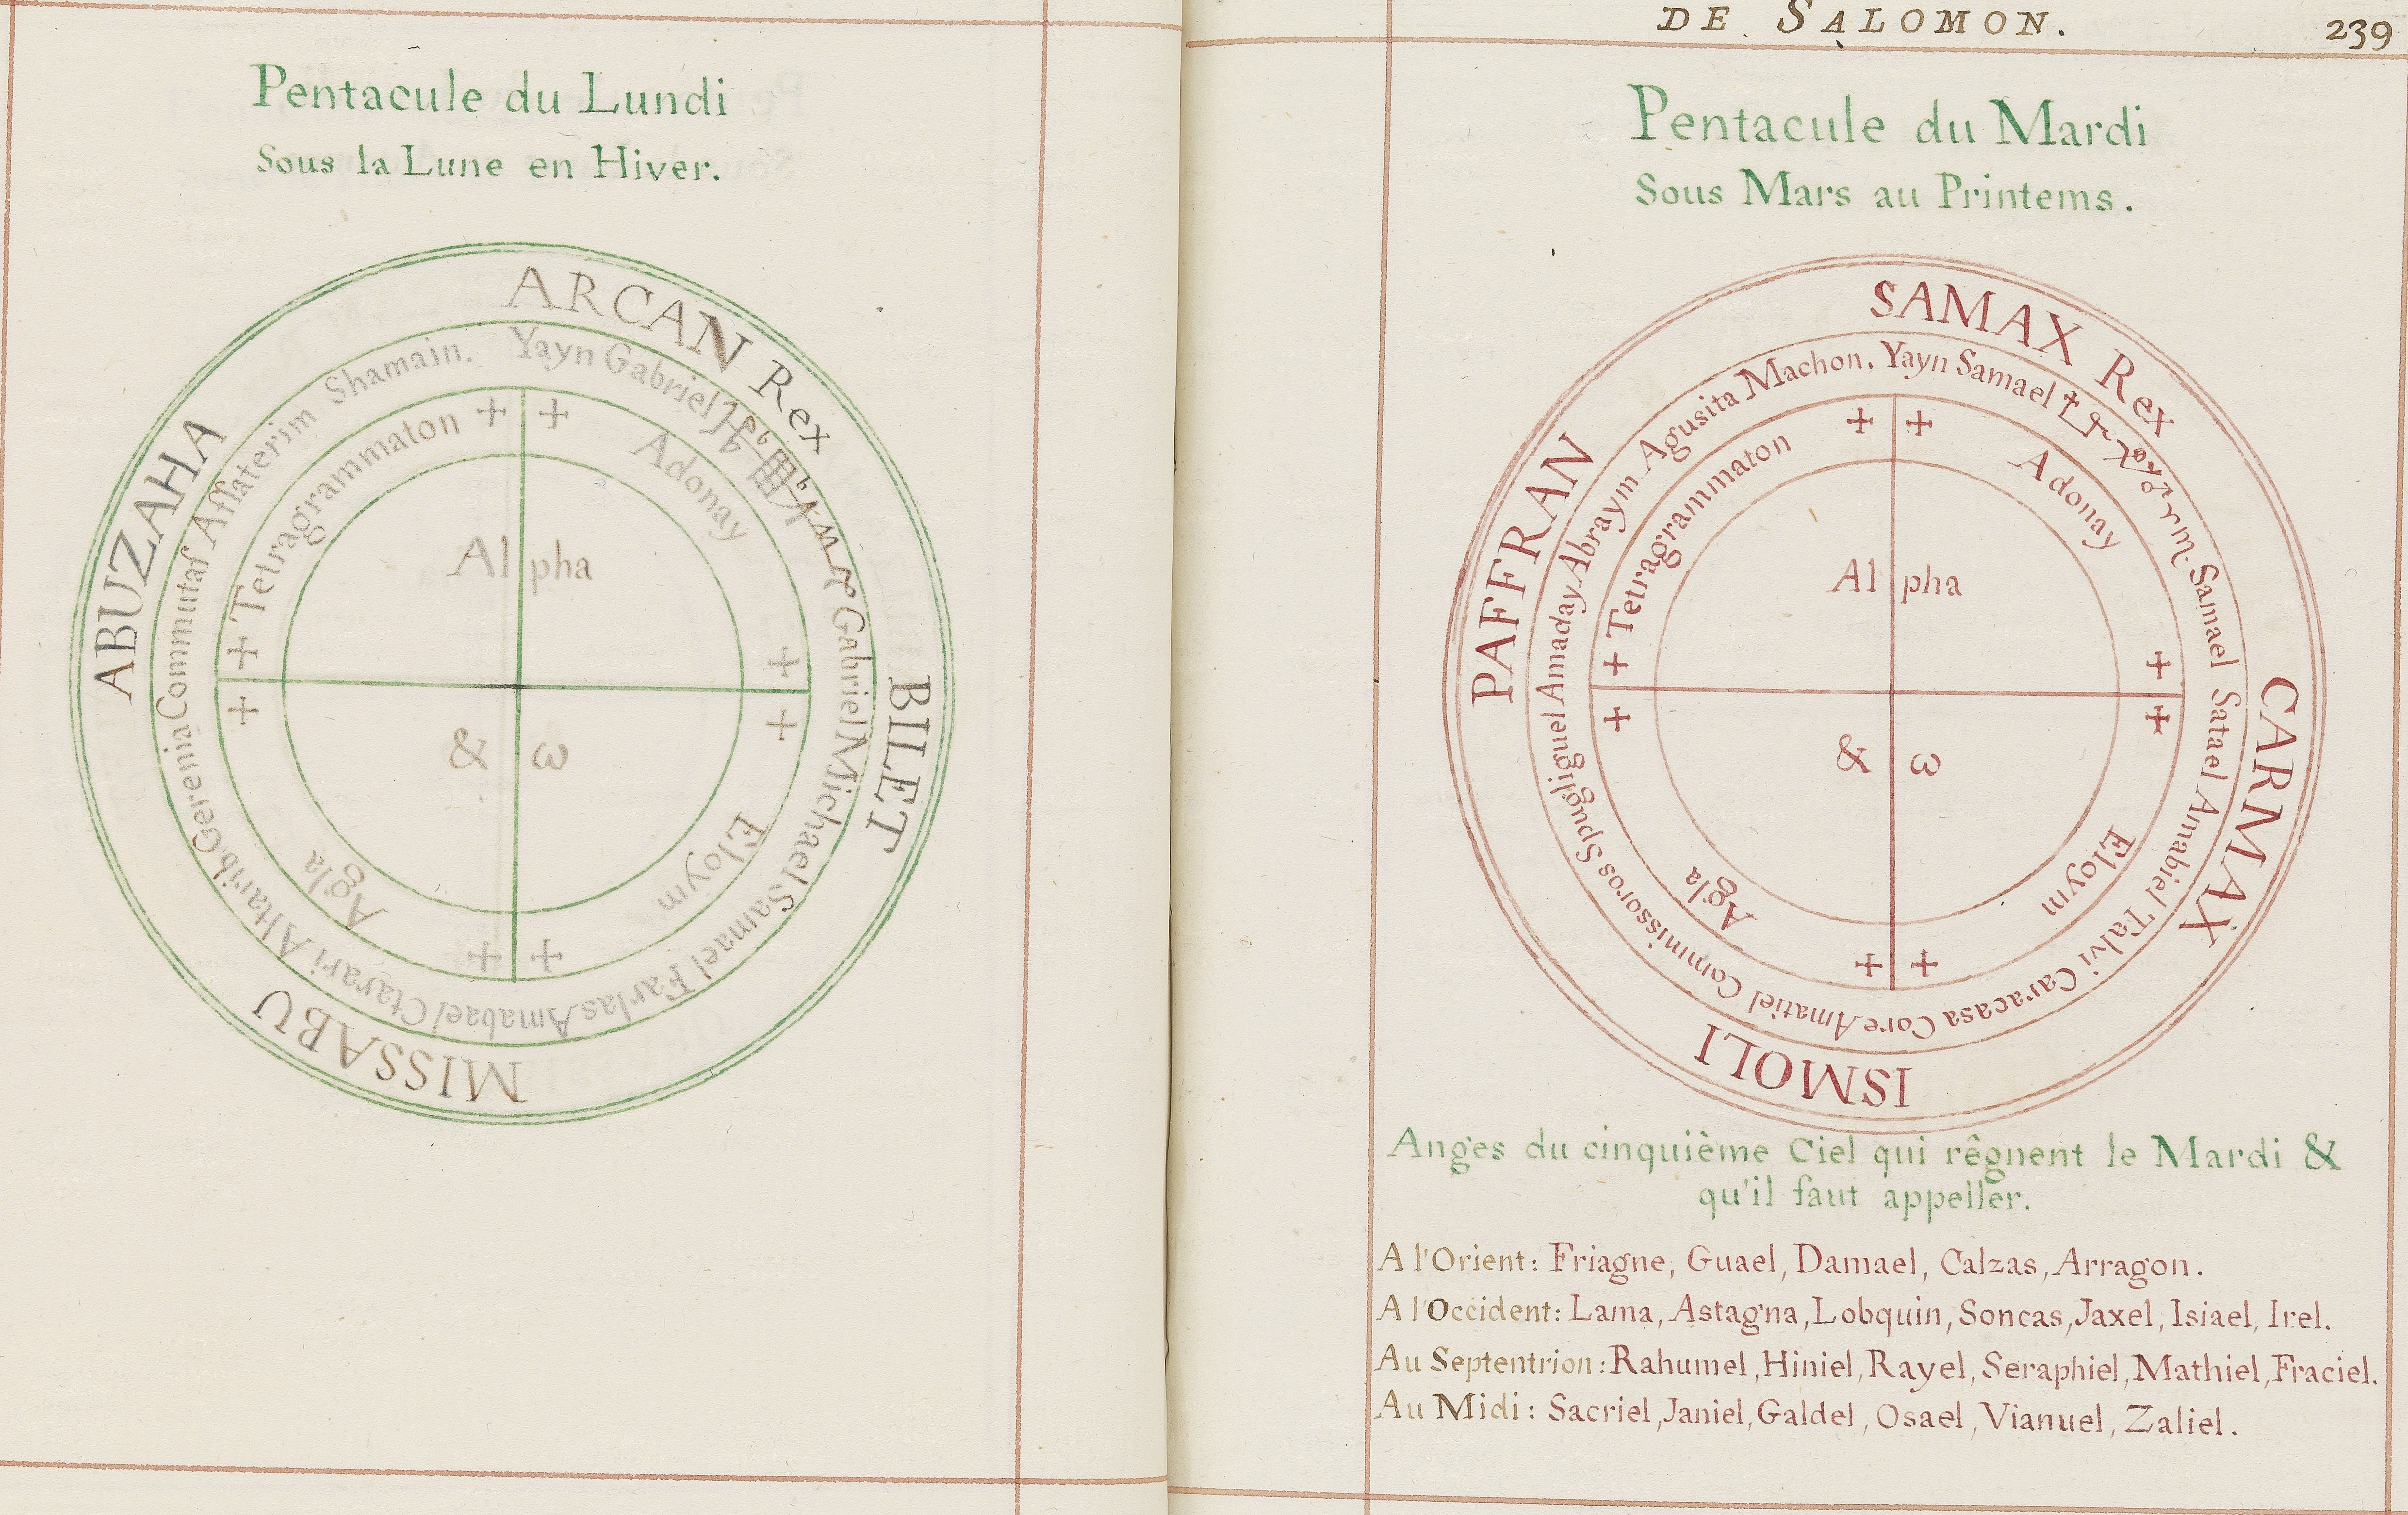 Pentacule du Lundi
Sous la Lune en Hiver.
ARCAN Rex
BILET
MISSABU
ABUZAHA
Yayn Gabriel
Gabriel Michael Samael Farlas Amabael Ctarari Altarib. Gerenia Commutaf Affaterim Shamain.
+ Adonay +
+ Eloym +
+ Agla +
+ Tetragrammaton +
Al pha
& ω
DE SALOMON.
239
Pentacule du Mardi
Sous Mars au Printems.
SAMAX Rex
CARMAX
ISMOLI
PAFFRAN
Yayn Samael
Samael Satael Amabiel Talvi Caracasa Core Amatiel Commissoros Spugliguel Amaday Abraym Agusita Machon.
+ Adonay +
+ Eloym +
+ Agla +
+ Tetragrammaton +
Al pha
& ω
Anges du cinquième Ciel qui rêgnent le Mardi &
qu'il faut appeller.
A l'Orient: Friagne, Guael, Damael, Calzas, Arragon.
A l'Occident: Lama, Astagna, Lobquin, Soncas, Jaxel, Isiael, Irel.
Au Septentrion: Rahumel, Hiniel, Rayel, Seraphiel, Mathiel, Fraciel.
Au Midi: Sacriel, Janiel, Galdel, Osael, Vianuel, Zaliel.